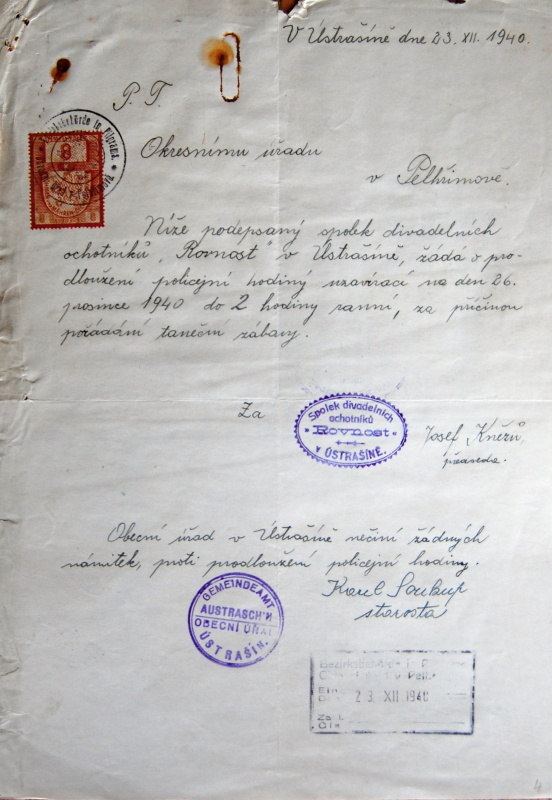 V Ústrašíně dne 23. XII. 1940.
P. T.
8
Okresnímu úřadu
v Pelhřimově.
Níže podepsaný spolek divadelních
ochotníků „Rovnost" v Ústrašíně, žádá o pro-
dloužení policejní hodiny uzavírací na den 26.
prosince 1940 do 2 hodiny ranní, za příčinou
pořádání taneční zábavy.
Za
Spolek divadelních
ochotníků
„Rovnost"
v ÚSTRAŠÍNĚ.
Josef Kněřů,
předseda.
Obecní úřad v Ústrašíně nečiní žádných
námitek, proti prodloužení policejní hodiny.
Karel Soukup
starosta
GEMEINDEAMT
AUSTRASCH'N
OBECNÍ ÚŘAD
ÚSTRAŠÍN.
Bezirksbehörde in
23 XII 1940
4